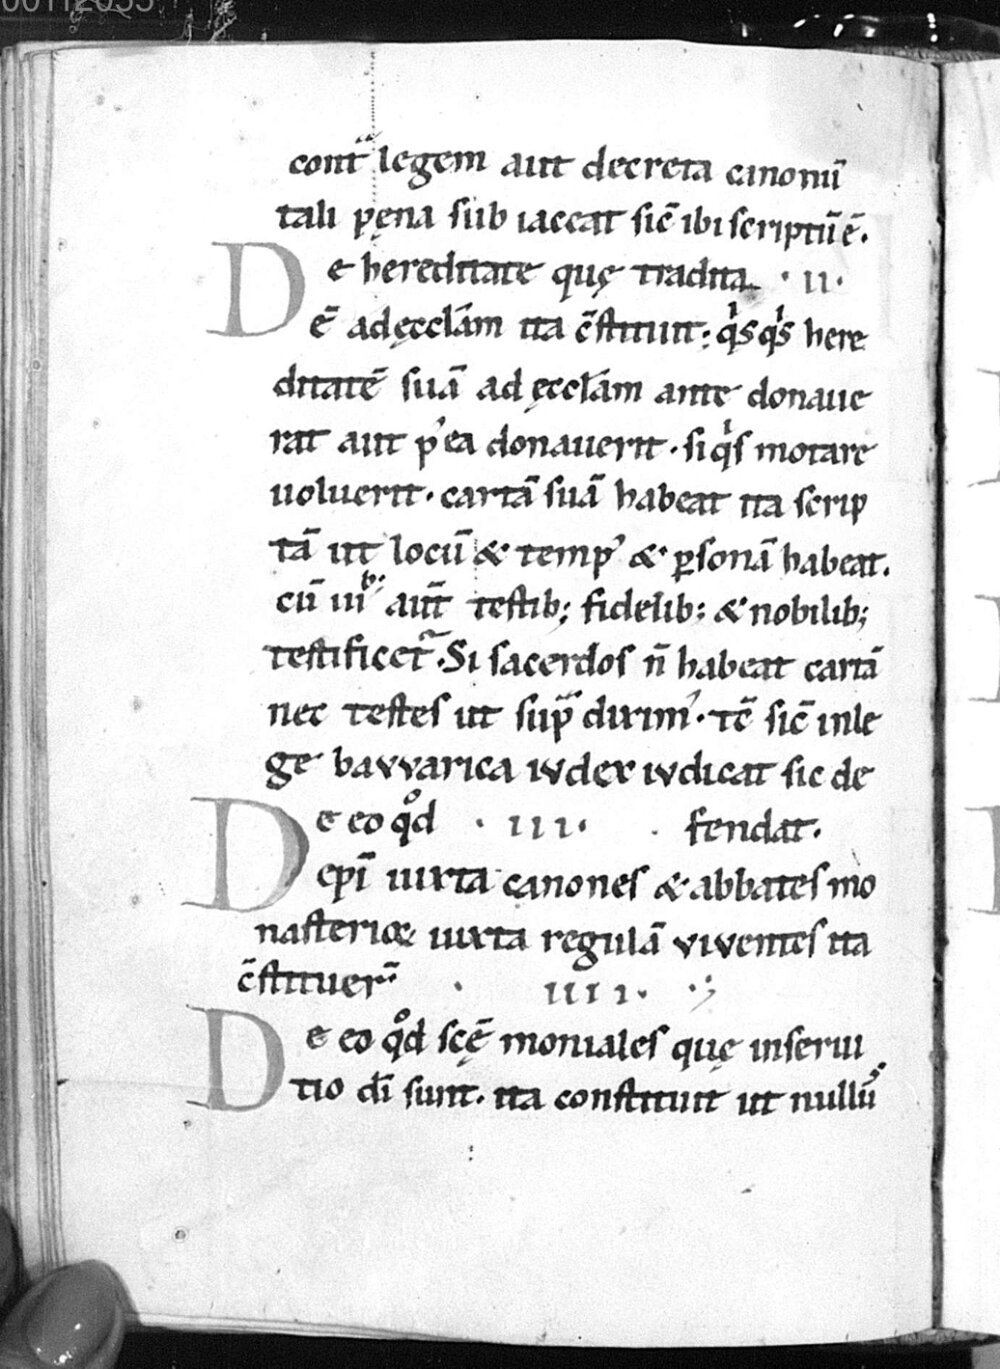 contᷓ legem aut decreta canonū
tali pęna sub iaceat sic̄ ibi scriptū ē.
De hereditate quę tradita · II ·
ē ad ęccl̄am ita c̄stituit: qͥsqͥs here
ditatē suā ad ęccl̄am ante donaue
rat aut p᾽ea donauerit · si qͥs motare
uoluerit · cartā suā habeat ita scrip
tā ut locū & temp᾽ & ꝑsonā habeat.
cū uiᵇ· aut̄ testib; fidelib; & nobilib;
testificet᷑ · Si sacerdos n̄ habeat cartā
nec testes ut supᷓ dixim᾽ · tc̄ sic̄ in le
ge bavvarica ivdex ivdicat sic de
De eo qͦd · III · fendat.
ep̄i iuxta canones & abbates mo
nasterioꝝ iuxta regulā viventes ita
c̄stituer̄ · IIII ·
De eo qͦd sc̄ę moniales quę in serui
tio dī sunt · ita constituit ut nullū